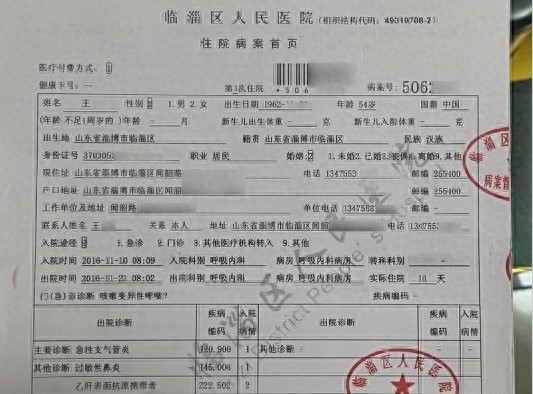 临淄区人民医院(组织结构代码：49319708-2)
住院病案首页
医疗付费方式：1
健康卡号：— 第3次住院 *506 病案号：5062
姓名 王 性别 2 1.男 2.女 出生日期 1962- 年龄 54岁 国籍 中国
(年龄不足1周岁的)年龄 - 月 新生儿出生体重 - 克 新生儿入院体重 - 克
出生地 山东省淄博市临淄区 籍贯 山东省淄博市临淄区 民族 汉族
身份证号 370305 职业 居民 婚姻 2 1.未婚 2.已婚 3.丧偶 4.离婚 9.其他
现住址 山东省淄博市临淄区闻韶路 电话 1347553 邮编 255400
户口地址 山东省淄博市临淄区闻韶 邮编 255400
工作单位及地址 闻韶路 单位电话 1347553 邮编 -
联系人姓名 王 关系 本人 地址 山东省淄博市临淄区闻韶 电话
入院途径 2 1.急诊 2.门诊 3.其他医疗机构转入 9.其他
入院时间 2016-11-10 08:09 入院科别 呼吸内科 病房 呼吸内科病房 转科科别 -
出院时间 2016-10-28 08:02 出院科别 呼吸内科 病房 呼吸内科病房 实际住院 18 天
门(急)诊诊断 咳嗽变异性哮喘? 疾病编码 -
出院诊断 疾病编码 入院病情 出院诊断 疾病编码 入院病情
主要诊断 急性支气管炎 J20.906 1 其他诊断
其他诊断 过敏性鼻炎 J45.004 1
乙肝表面抗原携带者 Z22.502 2
临淄区人民医院
病案首
临淄区人民医院
District People's